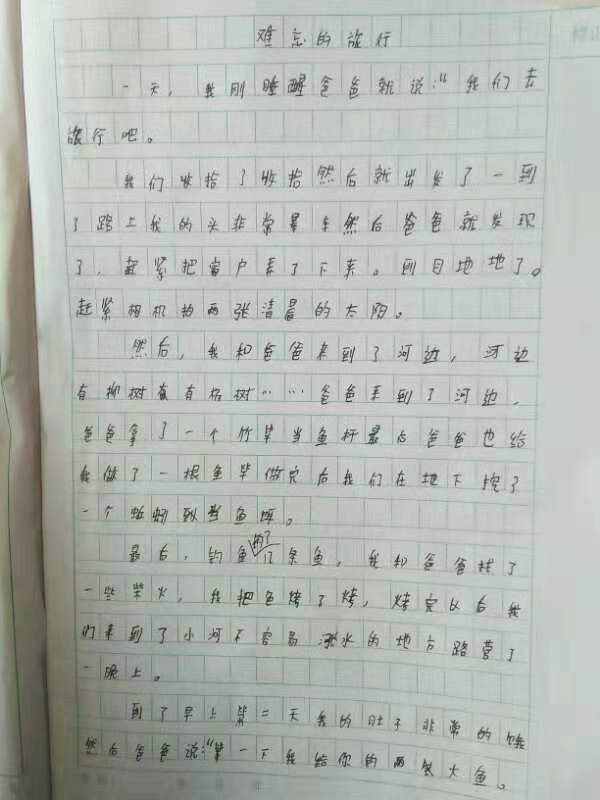 难忘的旅行
一天，我刚睡醒爸爸就说：“我们去
旅行吧。
我们收拾了收拾然后就出发了一到
了路上我的头非常晕车然后爸爸就发现
了，赶紧把窗户弄了下来。到目地地了。
赶紧相机拍两张清晨的太阳。
然后，我和爸爸来到了河边，河边
有柳树有杨树……爸爸来到了河边，
爸爸拿了一个竹竿当鱼杆最后爸爸也给
我做了一根鱼竿做完后我们在地下挖了
一个蚯蚓到当鱼饵。
最后，钓鱼钓了几条鱼，我和爸爸找了
一些柴火，我把鱼烤了烤，烤完以后我
们来到了小河不容易涨水的地方路营了
一晚上。
到了早上第二天我的肚子非常的饿
然后爸爸说：“一下我给你的两条大鱼。